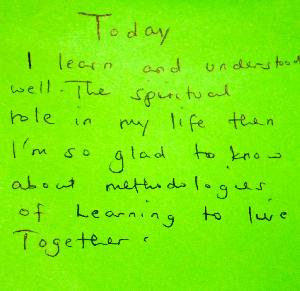 Today
I learn and understood
well. The spiritual
role in my life then
I'm so glad to know
about methodologies
of Learning to live
Together.